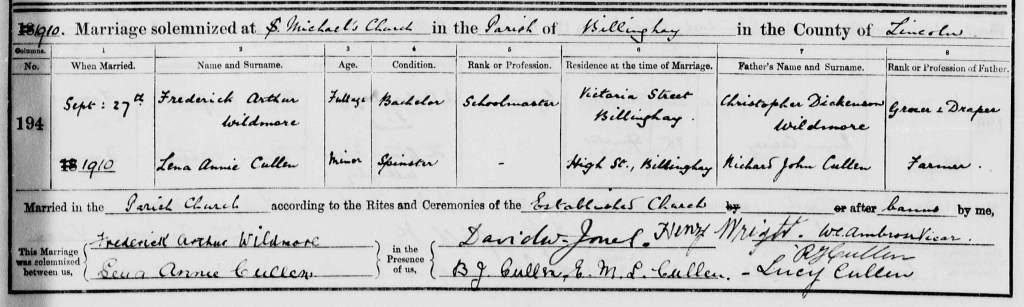 1910. Marriage solemnized at St. Michael's Church in the Parish of Billinghay in the County of Lincoln
Columns. 1 2 3 4 5 6 7 8
No. When Married. Name and Surname. Age. Condition. Rank or Profession. Residence at the time of Marriage. Father's Name and Surname. Rank or Profession of Father.
194 Sept: 27th 1910 Frederick Arthur Wildmore Full age Bachelor Schoolmaster Victoria Street Billinghay. Christopher Dickenson Wildmore Grocer & Draper
Lena Annie Cullen Minor Spinster - High St., Billinghay Richard John Cullen Farmer.
Married in the Parish Church according to the Rites and Ceremonies of the Established Church by or after banns by me,
This Marriage was solemnized between us, Frederick Arthur Wildmore in the Presence of us, David W. Jones. Henry Wright. Vicar.
Lena Annie Cullen. B J Cullen, E. M. L. Cullen. - Lucy Cullen
R J Cullen